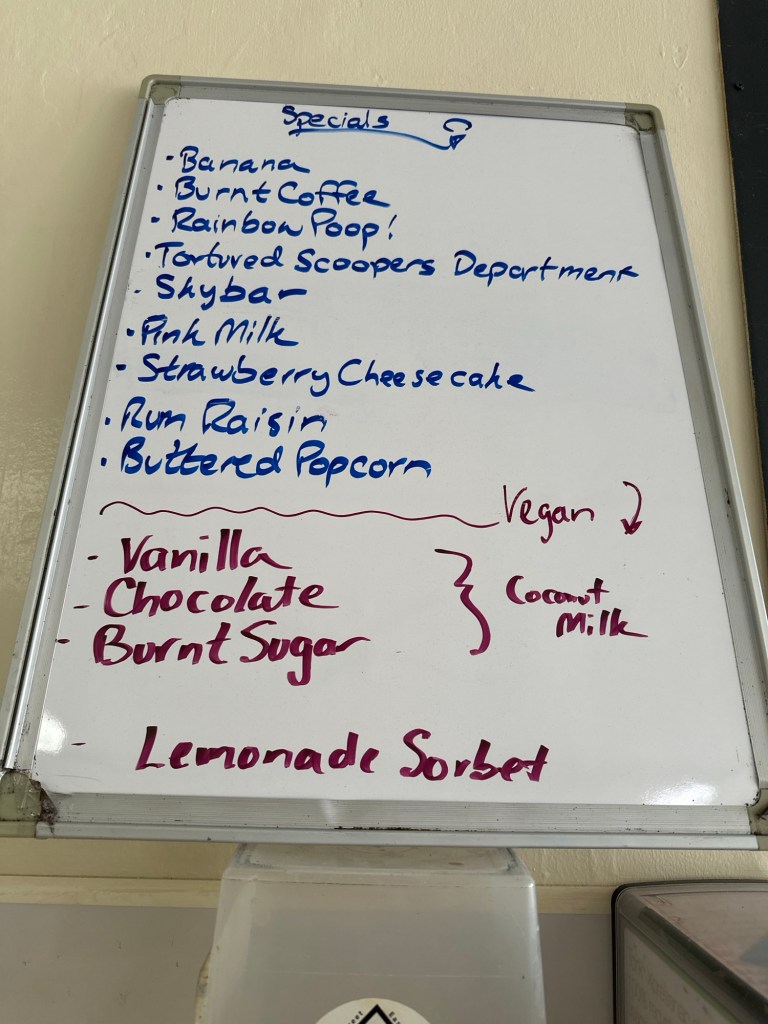 Specials
· Banana
· Burnt Coffee
· Rainbow Poop!
· Tortured Scoopers Department
· Skybar
· Pink Milk
· Strawberry Cheesecake
· Rum Raisin
· Buttered Popcorn
Vegan
- Vanilla
- Chocolate
- Burnt Sugar
Coconut
Milk
- Lemonade Sorbet